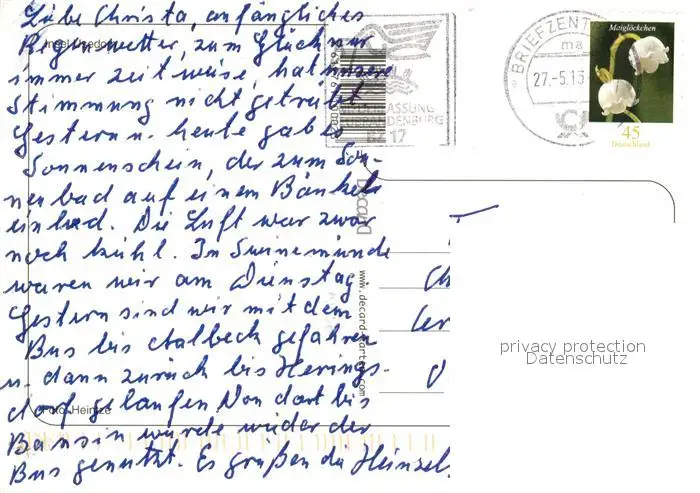 Liebe Christa, anfängliches
Regenwetter, zum Glück nur
immer zeitweise, hat unsere
Stimmung nicht getrübt.
Gestern u. heute gab es
Sonnenschein, der zum Son-
nenbad auf einem Bänkele
einlud. Die Luft war zwar
noch kühl. In Swinemünde
waren wir am Dienstag.
Gestern sind wir mit dem
Bus bis Ahlbeck gefahren
u. dann zurück bis Herings-
dorf gelaufen. Von dort bis
Bansin wurde wieder der
Bus genutzt. Es grüßen die Heinzel
Insel Usedom
Foto: Heintze
Decard
www.decard-karten.com
BRIEFZENT
ma
27.-5.13
17
Maiglöckchen
45
Deutschland
privacy protection
Datenschutz